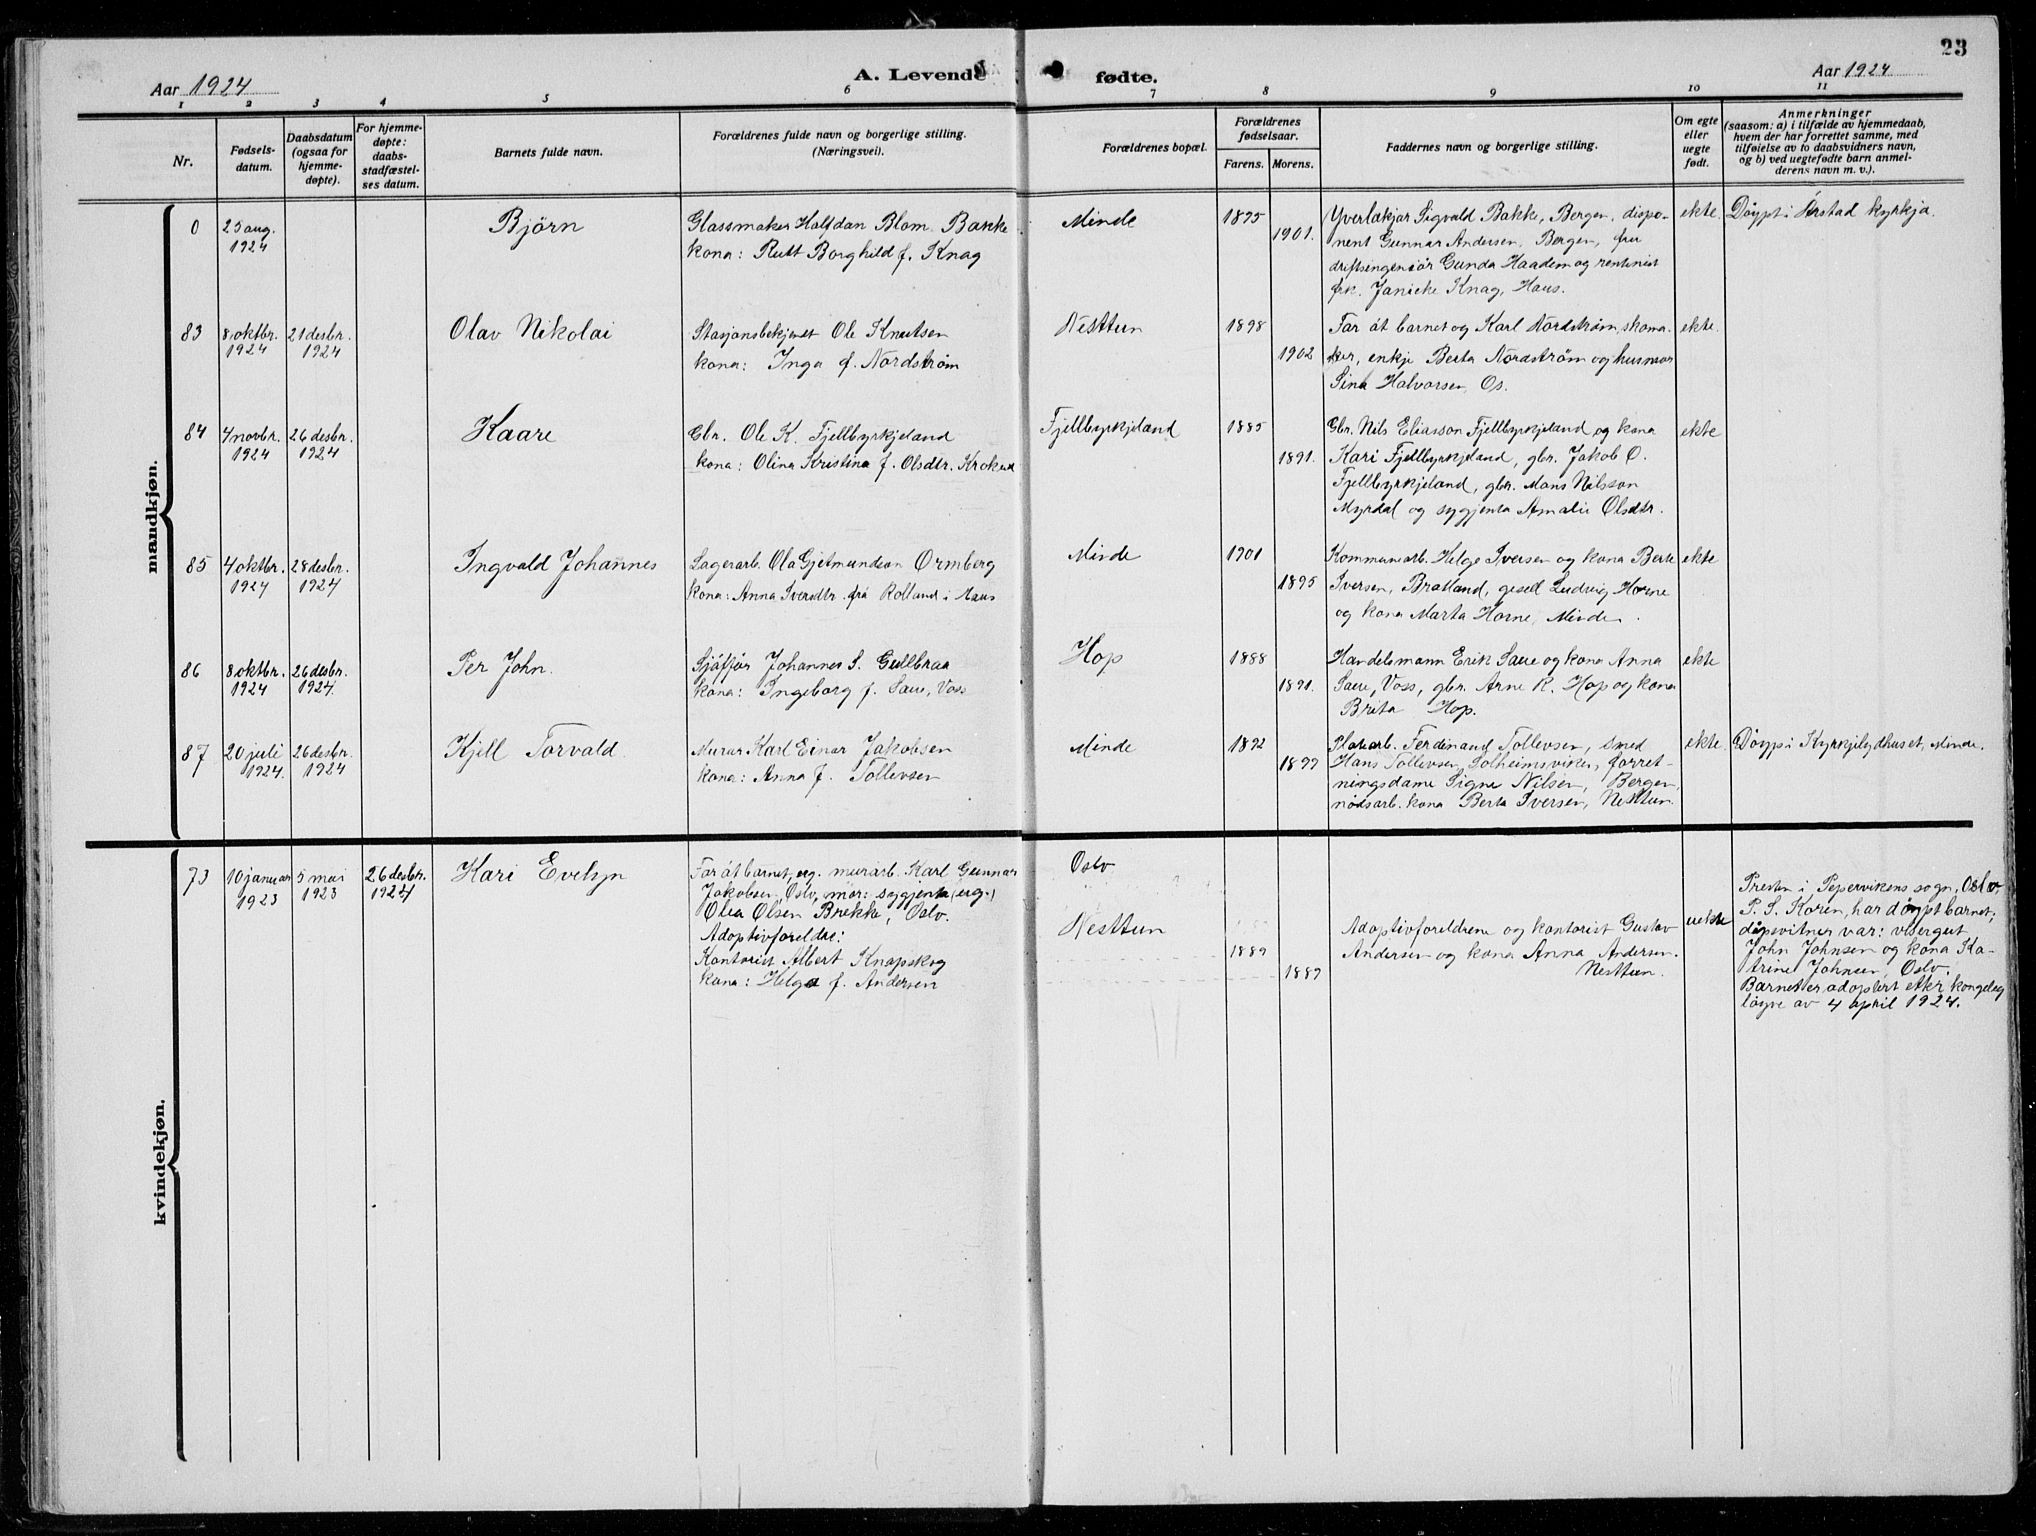 23
Aar 1924
A. Levende fødte.
Aar 1924
1 2 3 4 5 6 7 8 9 10 11
Nr.
Fødsels-
datum.
Daabsdatum
(ogsaa for
hjemme-
døpte).
For hjemme-
døpte:
daabs-
stadfæstel-
ses datum.
Barnets fulde navn.
Forældrenes fulde navn og borgerlige stilling.
(Næringsvei).
Forældrenes bopæl.
Forældrenes
fødselsaar.
Farens. Morens.
Faddernes navn og borgerlige stilling.
Om egte
eller
uegte
født.
Anmerkninger
(saasom: a) i tilfælde av hjemmedaab,
hvem der har forrettet samme, med
tilføielse av to daabsvidners navn,
og b) ved uegtefødte barn anmel-
derens navn m. v.).
mandkjøn.
0
25 aug.
1924
Bjørn
Glassmaker Halfdan Blom Bakke
kona: Rutt Borghild f. Knag
Minde
1895
1901.
Yverlækjar Sigvald Bakke, Bergen, dispo-
nent Gunnar Andersen, Bergen, fru
driftsingeniør Gunda Haadem og rentenist
frk. Janicke Knag, Haus.
ekte
Døypt i Årstad kyrkja.
83
8 oktbr.
1924
21 desbr.
1924
Olav Nikolai
Stasjonsbetjent Ole Knutsen
kona: Inga f. Nordstrøm
Nesttun
1898
1902
Far åt barnet og Karl Nordstrøm, skoma-
ker, enkje Berta Nordstrøm og husmor
Sina Halvorsen, Os.
ekte
84
4 novbr.
1924
26 desbr.
1924
Kaare
Gbr. Ole K. Fjellbyrkjeland
kona: Olina Kristina f. Olsdtr.
Fjellbyrkjeland
1885
1891.
Gbr. Nils Eliasson Fjellbyrkjeland og kona
Kari Fjellbyrkjeland, gbr. Jakob O.
Fjellbyrkjeland, gbr. Mons Nilsson
Myrdal og sygjenta Amalie Olsdtr.
ekte
85
4 oktbr.
1924
28 desbr.
1924
Ingvald Johannes
Lagerarb. Ola Gjetmundson Ormberg
kona: Anna Iversdtr. frå Rolland i Haus
Minde
1901
1895
Kommunearb. Helge Iversen og kona Berte
Iversen, Bratland, gesell Ludvig Horne
og kona Marta Horne, Minde.
ekte
86
8 oktbr.
1924
26 desbr.
1924.
Per John.
Sjåfjør Johannes S. Gullbraa
kona: Ingeborg f. Saue, Voss
Hop
1888
1891.
Handelsmann Erik Saue og kona Anna
Saue, Voss, gbr. Arne R. Hop og kona
Brita Hop.
ekte
87
20 juli
1924.
26 desbr.
1924
Kjell Torvald.
Murar Karl Einar Jakobsen
kona: Anna f. Tollevsen
Minde
1892
1899
Platearb. Ferdinand Tollevsen, smed
Hans Tollevsen, Solheimsviken, forret-
ningsdame Signe Nilsen, Bergen,
nødsarb. kona Berta Iversen, Nesttun.
ekte
Døypt i Kyrkjelydhuset, Minde.
kvindekjøn.
73
10 januar
1923
5 mai
1923
26 desbr.
1924
Kari Evelyn
Far åt barnet, ug. murarb. Karl Gunnar
Jakobsen, Oslo, mor: sygjenta (ug.)
Olea Olsen Brekke, Oslo.
Adoptivforeldre:
Kontorist Albert Knapskog
kona: Helga f. Andersen
Oslo
Nesttun
1889
1889
Adoptivforeldrene og kontorist Gustav
Andersen og kona Anna Andersen.
Nesttun.
uekte
Presten i Pipervikens sogn, Oslo
P. S. Koren, har døypt barnet;
dåpsvitner var: visergut
John Johnsen og kona Ka-
trine Johnsen, Oslo.
Barnet er adoptert etter kongeleg
løyve av 4 april 1924.